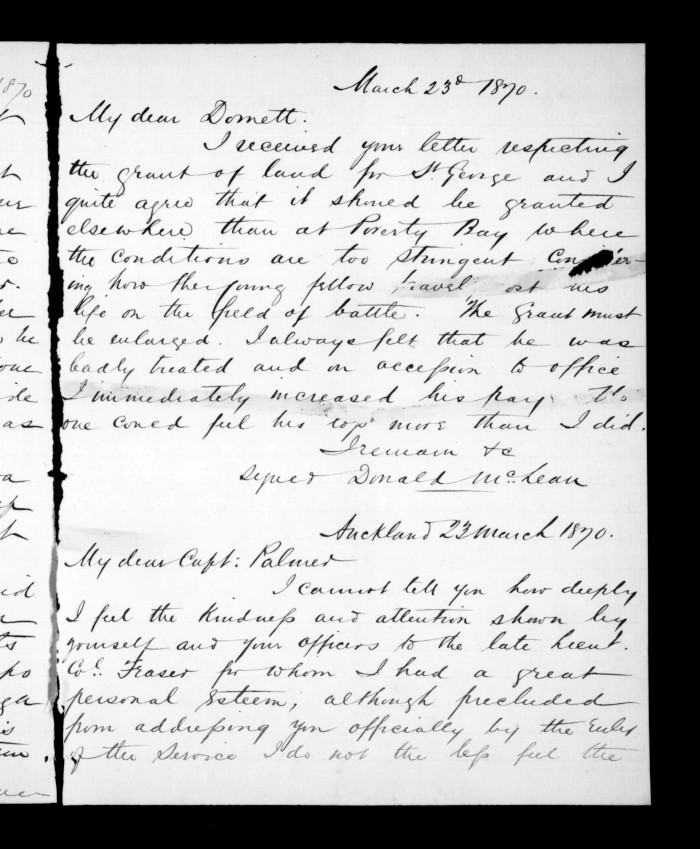 March 23d 1870.
My dear Domett.
I received your letter respecting
the grant of land for St. George and I
quite agree that it should be granted
elsewhere than at Poverty Bay where
the conditions are too stringent
ing how the young fellow lost his
life on the field of battle. The Grant must
be enlarged. I always felt that he was
badly treated and on accession to office
I immediately increased his pay. No
one could feel his loss more than I did.
I remain &c
signed Donald McLean
Auckland 23 March 1870.
My dear Capt: Palmer
I cannot tell you how deeply
I feel the kindness and attention shown by
yourself and your officers to the late Lieut.
Col. Fraser for whom I had a great
personal esteem; although precluded
from addressing you officially by the Rules
of the Service I do not the less feel the